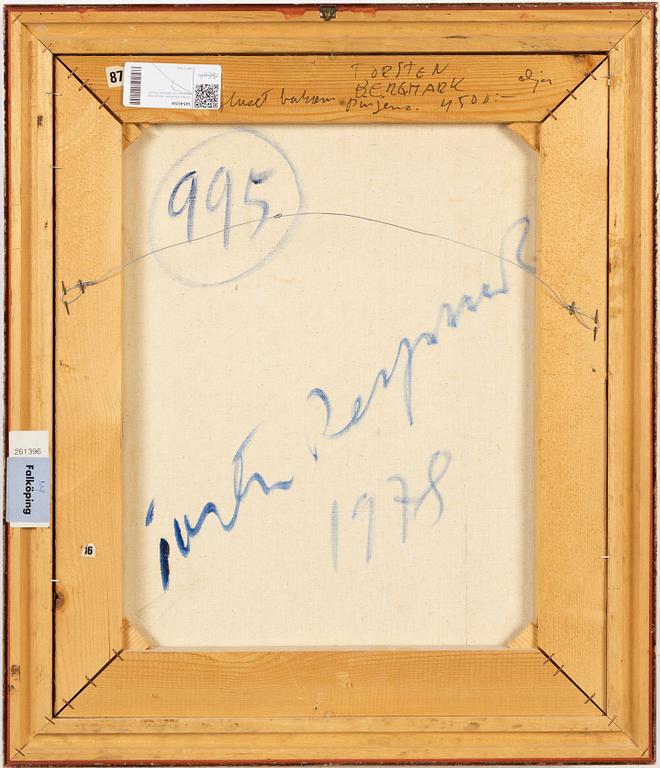 87
TORSTEN
BERGMARK
oljor
4500:-
995
Torsten Bergmark
1978
261396
Falköping
16